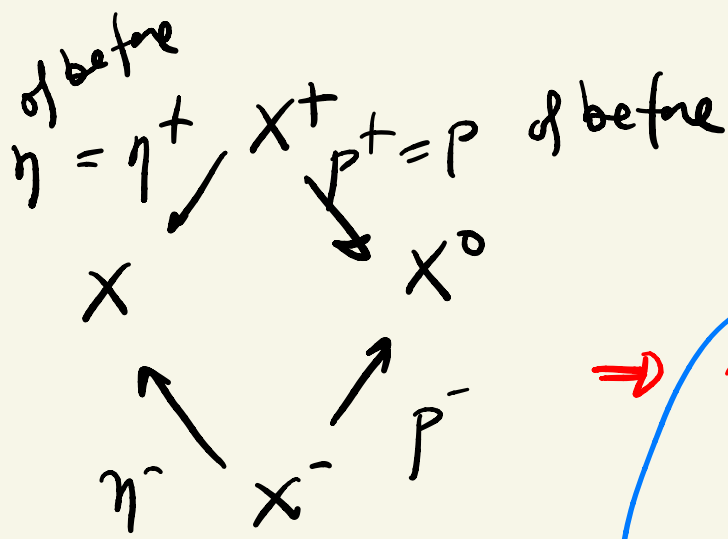 of before
η = η⁺ X⁺ p⁺ = p of before
X X⁰
⇒
η⁻ X⁻ p⁻